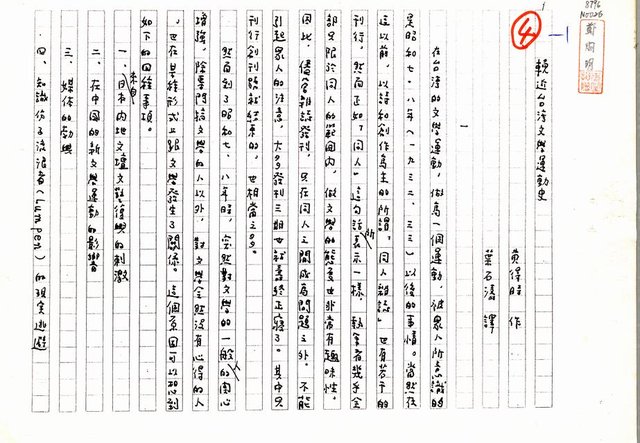 8796
N0026
1
④-1
輓近台湾文學運動史
黄得時 作
葉石濤 譯
一
在台湾的文學運動，做為一個運動，被眾人所意識的
是昭和七、八年（一九三二、三三）以後的事情。當然在
這以前，以詩和創作為主的所謂「同人雜誌」也有若干的
刊行，然而正如「同人」這句話所表示一樣，執筆者幾乎全
部只限於同人的範圍内，做文學的態度也非常有趣味性。
因此，儘管雜誌發刊，只在同人之間成為問題之外，不能
引起眾人的注意，大多發刊三期也就壽終正寢了。其中只
刊行創刊號就結束的，也相當之多。
然而到了昭和七、八年時，突然對文學的一般人的関心
增強，除專門搞文學的人以外，對文學全然沒有心得的人
，也在某種形式上跟文學發生了関係。這個原因可以記到
如下的四種事項。
一、來自日本内地文壇文藝復興的刺激
二、在中國的新文學運動的影響
三、媒体的勃興
四、知識份子流浪者（Lumpen）的現实逃避